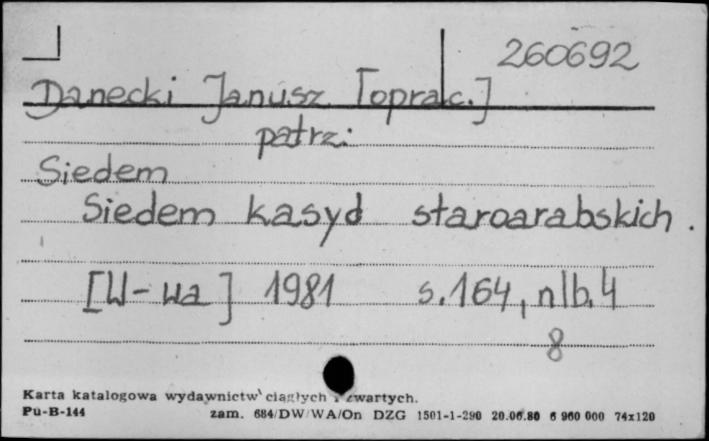 260692
Danecki Janusz [oprac.]
patrz:
Siedem
Siedem kasyd staroarabskich.
[W-wa] 1981 s.164, nlb.4
8
Karta katalogowa wydawnictw ciągłych i zwartych.
Pu-B-144 zam. 684/DW/WA/On DZG 1501-1-290 20.06.80 6 960 000 74x120